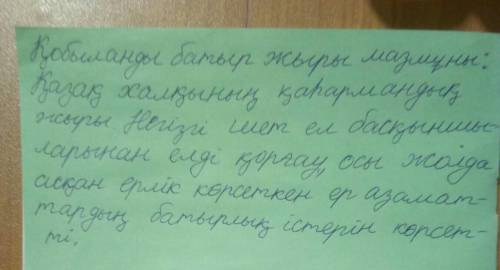 Қобыланды батыр жыры мазмұны:
Қазақ халқының қаһармандық
жыры. Негізгі шет ел басқыншы-
ларынан елді қорғау, осы жолда
асқан ерлік көрсеткен ер азамат-
тардың батырлық істерін көрсет-
ті.